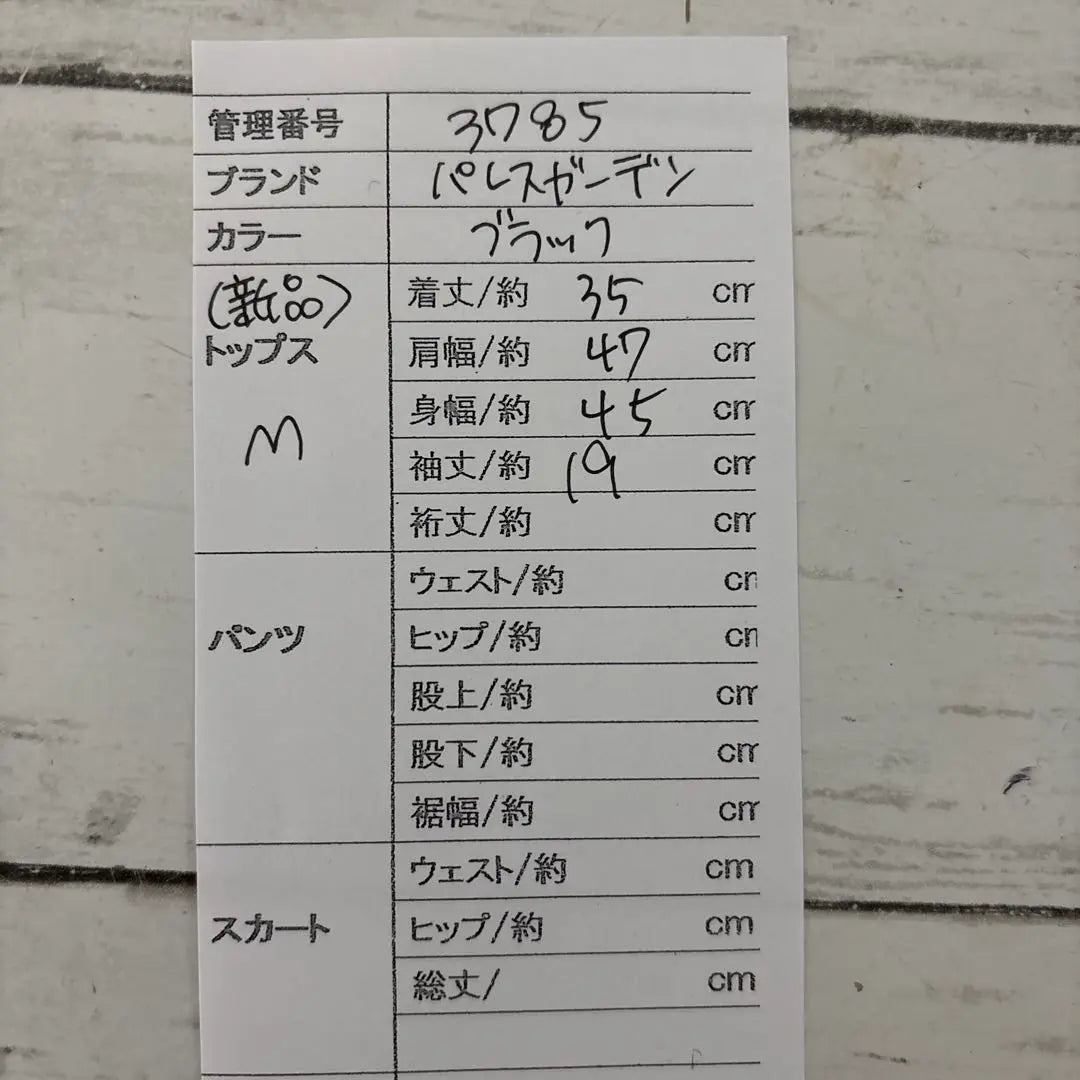 管理番号 3785
ブランド パレスガーデン
カラー ブラック
(新品)
トップス
M
着丈/約 35 cm
肩幅/約 47 cm
身幅/約 45 cm
袖丈/約 19 cm
裄丈/約 cm
パンツ
ウェスト/約 cm
ヒップ/約 cm
股上/約 cm
股下/約 cm
裾幅/約 cm
スカート
ウェスト/約 cm
ヒップ/約 cm
総丈/ cm